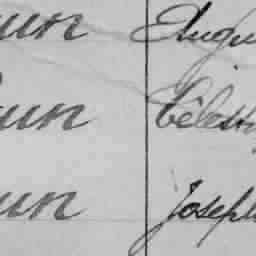 un Augu
un Célest
un Joseph